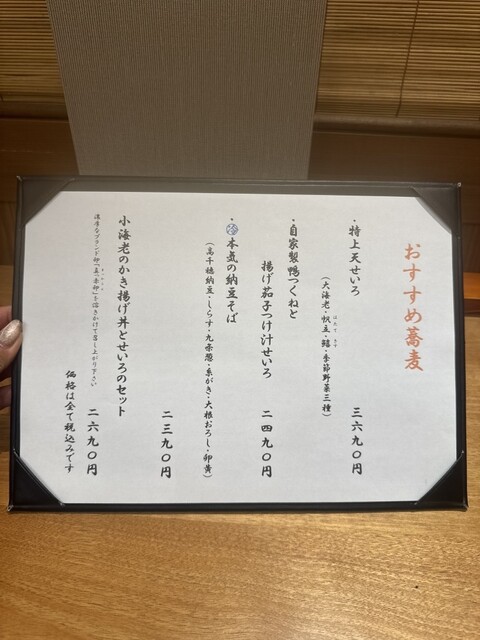 おすすめ蕎麦
・特上天せいろ 三六九〇円
(大海老・帆立・鱚・季節野菜三種)
・自家製鴨つくねと
揚げ茄子つけ汁せいろ 二四九〇円
・冷本気の納豆そば 二三九〇円
(高千穂納豆・しらす・九条葱・糸がき・大根おろし・卵黄)
小海老のかき揚げ丼とせいろのセット 二六九〇円
濃厚なブランド卵「真・
」を溶きかけて召し上がり下さい
価格は全て税込みです